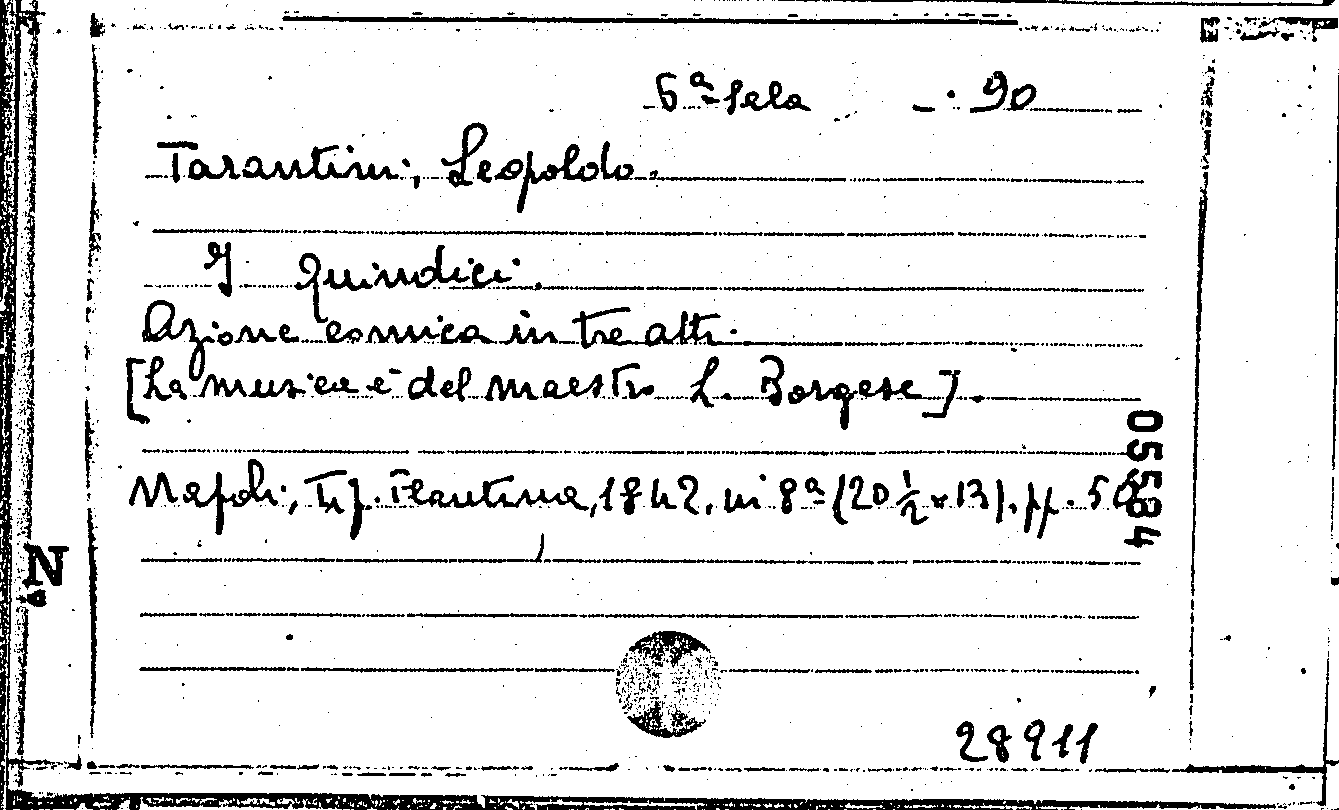 6ª Sala -. 90
Tarantini, Leopoldo.
I Quindici.
Azione comica in tre atti.
[La musica è del maestro L. Borgese].
Napoli, Tip. Flautina, 1842. in 8ª (20 ½ x 13). pp. 56
05584
N
28911